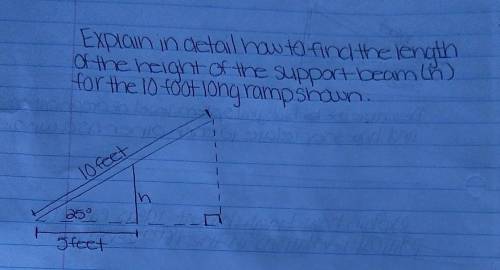 Explain in detail how to find the length
of the height of the support beam (h)
for the 10 foot long ramp shown.
10 feet
25°
h
feet